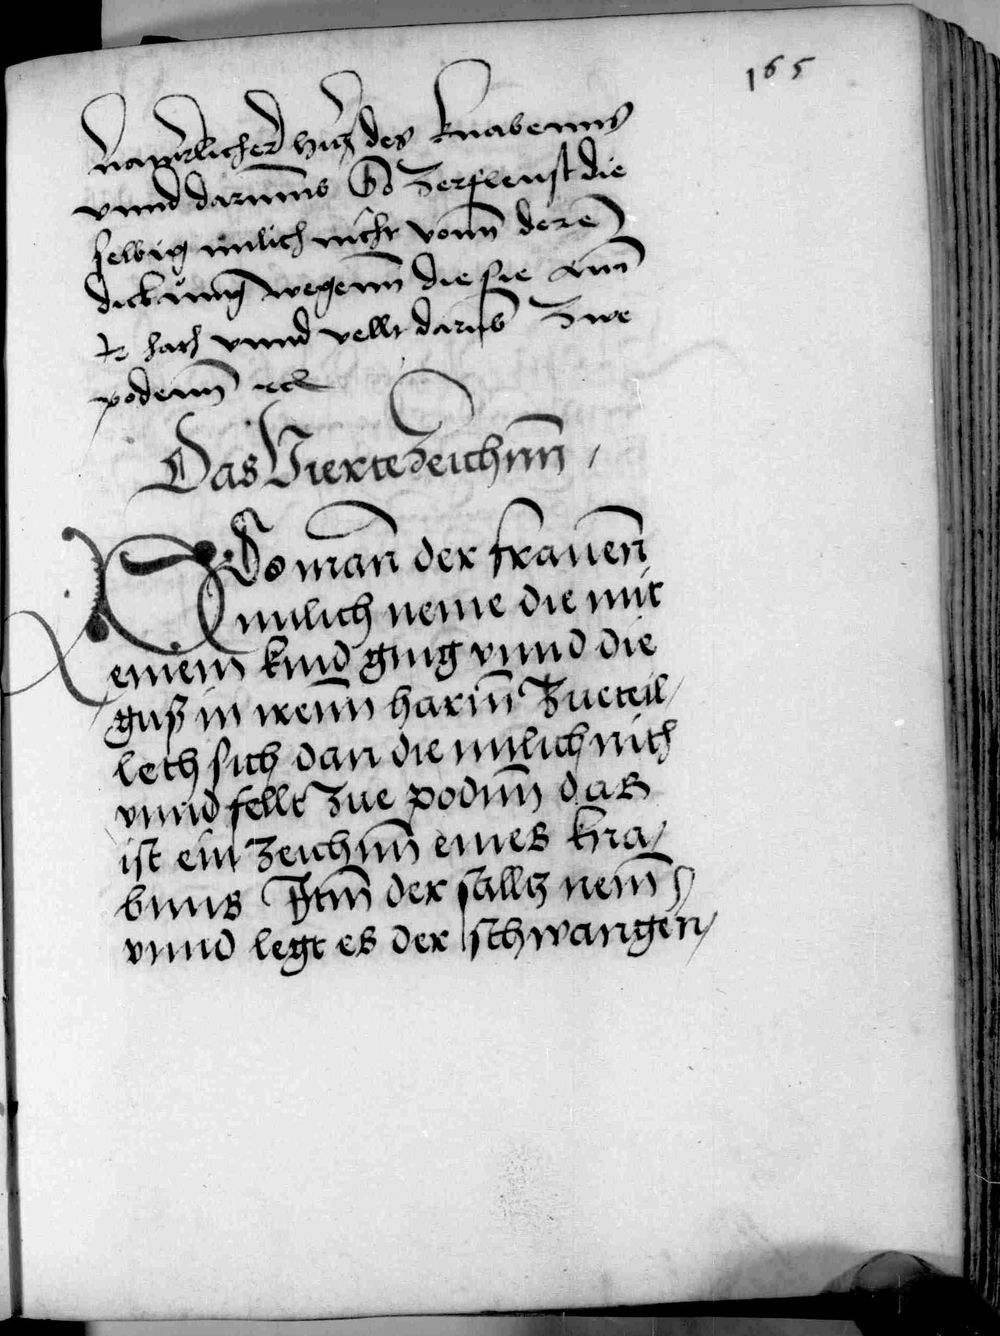 165
naturlicher hitz des knabenns
vnnd darumb So Zerfleust die
selbig milich nicht vonn dere
dickung wegenn die sie ann
ir hath vnnd vellt darub Zwe
podenn
Das Vierte Zeichnn /
So man der frauen
milich neme die mit
einem kind ging vnnd die
guß in irenn harnn Zueteil/
leth sich dan die milich nith
vnnd fellt Zue podnn das
ist ein Zeichnn eines kna/
bnns Jtm der salltz nem
vnnd legt es der schwangen/